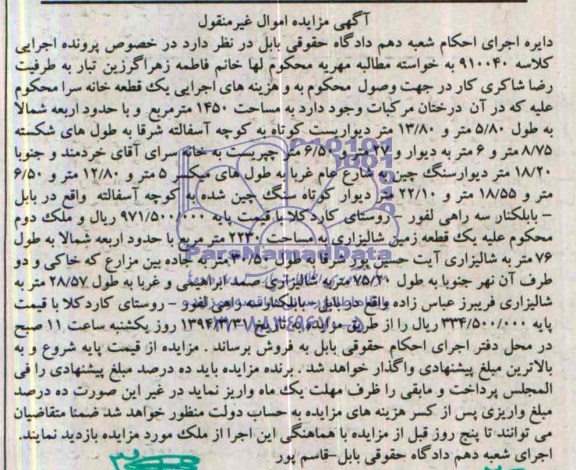 آگهی مزایده اموال غیرمنقول
دایره اجرای احکام شعبه دهم دادگاه حقوقی بابل در نظر دارد در خصوص پرونده اجرایی
کلاسه ۹۱۰۰۴۰ به خواسته مطالبه مهریه محکوم لها خانم فاطمه زهراگرزین تبار به طرفیت
رضا شاکری کار در جهت وصول محکوم به و هزینه های اجرایی یک قطعه خانه سرا محکوم
علیه که در آن درختان مرکبات وجود دارد به مساحت ۱۴۵۰ مترمربع و با حدود اربعه شمالا
به طول ۵/۸۰ متر و ۱۳/۸۰ متر دیواربست کوتاه به کوچه آسفالته شرقا به طول های شکسته
۸/۷۵ متر و ۶ متر به دیوار و ۲۷ متر و ۶/۵۰ متر چپربست به خانه سرای آقای خردمند و جنوبا
۱۸/۲۰ متر دیوارسنگ چین به شارع عام غربا به طول های میکسر ۵ متر و ۱۲/۸۰ متر و ۶/۵۰
متر و ۱۸/۵۵ متر و ۲۲/۱۰ متر دیوار کوتاه سنگ چین شده به کوچه آسفالته واقع در بابل
– بابلکنار سه راهی لفور – روستای کاردکلا با قیمت پایه ۹۷۱/۵۰۰/۰۰۰ ریال و ملک دوم
محکوم علیه یک قطعه زمین شالیزاری به مساحت ۲۲۳۰ متر مربع با حدود اربعه شمالا به طول
۷۶ متر به شالیزاری آیت حسین پور شرقا به طول ۳۱/۵۰ متر به جاده بین مزارع که خاکی و دو
طرف آن نهر جنوبا به طول ۷۵/۲۰ متر به شالیزاری صمد ابراهیمی و غربا به طول ۲۸/۵۷ متر به
شالیزاری فریبرز عباس زاده واقع در بابل – بابلکنار سه راهی لفور – روستای کاردکلا با قیمت
پایه ۳۳۴/۵۰۰/۰۰۰ ریال را از طریق مزایده به تاریخ ۱۳۹۴/۳/۳۱ روز یکشنبه ساعت ۱۱ صبح
در محل دفتر اجرای احکام حقوقی بابل به فروش برساند . مزایده از قیمت پایه شروع و به
بالاترین مبلغ پیشنهادی واگذار خواهد شد . برنده مزایده باید ده درصد مبلغ پیشنهادی را فی
المجلس پرداخت و مابقی را ظرف مهلت یک ماه واریز نماید در غیر این صورت ده درصد
مبلغ واریزی پس از کسر هزینه های مزایده به حساب دولت منظور خواهد شد ضمنا متقاضیان
می توانند تا پنج روز قبل از مزایده با هماهنگی این اجرا از ملک مورد مزایده بازدید نمایند.
اجرای شعبه دهم دادگاه حقوقی بابل-قاسم پور
ParsNamadData